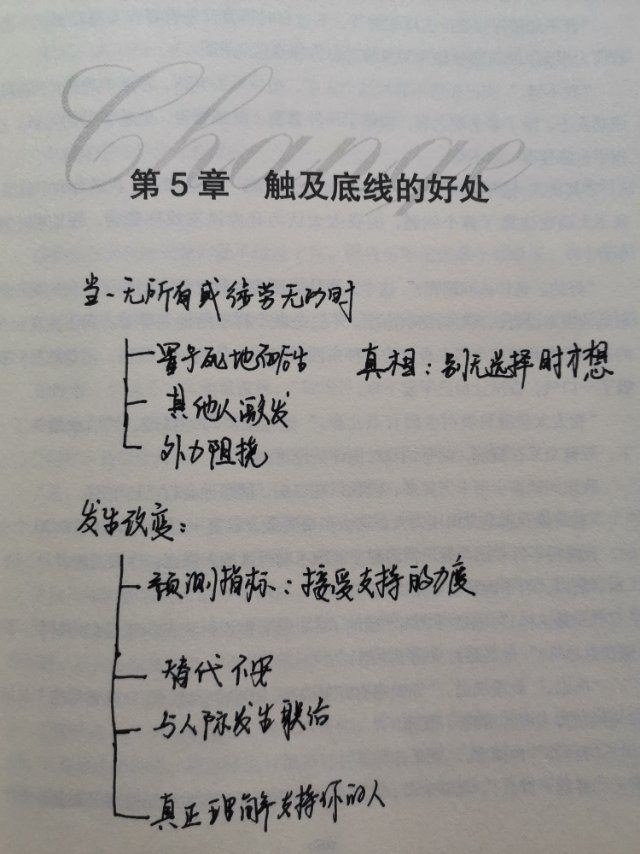 Change
第5章 触及底线的好处
当一无所有或徒劳无功时
置于死地而后生 真相：别无选择时才想
其他人激发
外力阻挠
发生改变：
预测指标：接受支持的力度
替代不
与人际发生联结
真正理解并支持你的人